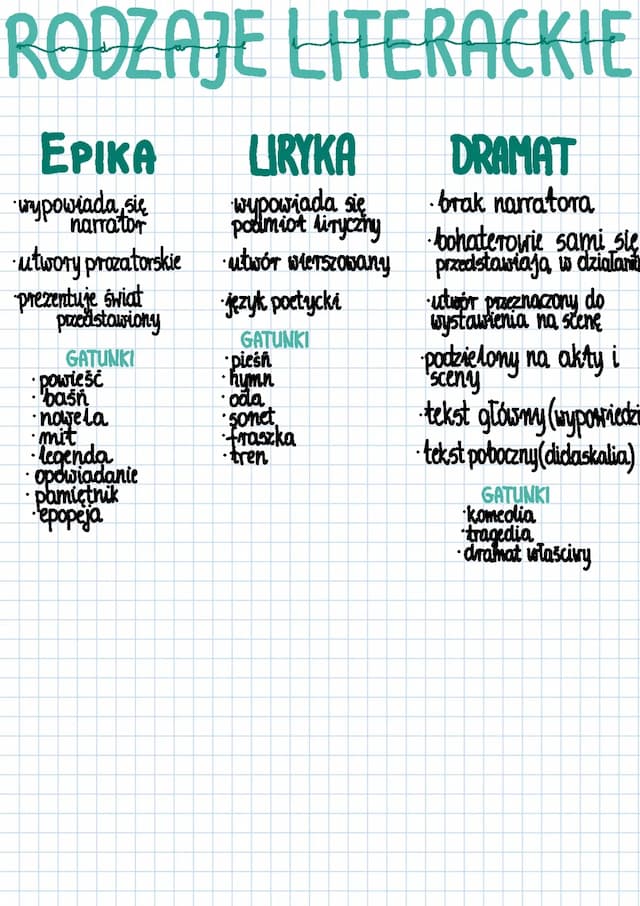 RODZAJE LITERACKIE
rodzaje literackie
EPIKA
·wypowiada się
narrator
·utwory prozatorskie
·prezentuje świat
przedstawiony
GATUNKI
·powieść
·baśń
·nowela
·mit
·legenda
·opowiadanie
·pamiętnik
·epopeja
LIRYKA
·wypowiada się
podmiot liryczny
·utwór wierszowany
·język poetycki
GATUNKI
·pieśń
·hymn
·oda
·sonet
·fraszka
·tren
DRAMAT
·brak narratora
·bohaterowie sami się
przedstawiają w działani
·utwór przeznaczony do
wystawienia na scenę
·podzielony na akty i
sceny
·tekst główny (wypowiedzi
·tekst poboczny (didaskalia)
GATUNKI
·komedia
·tragedia
·dramat właściwy